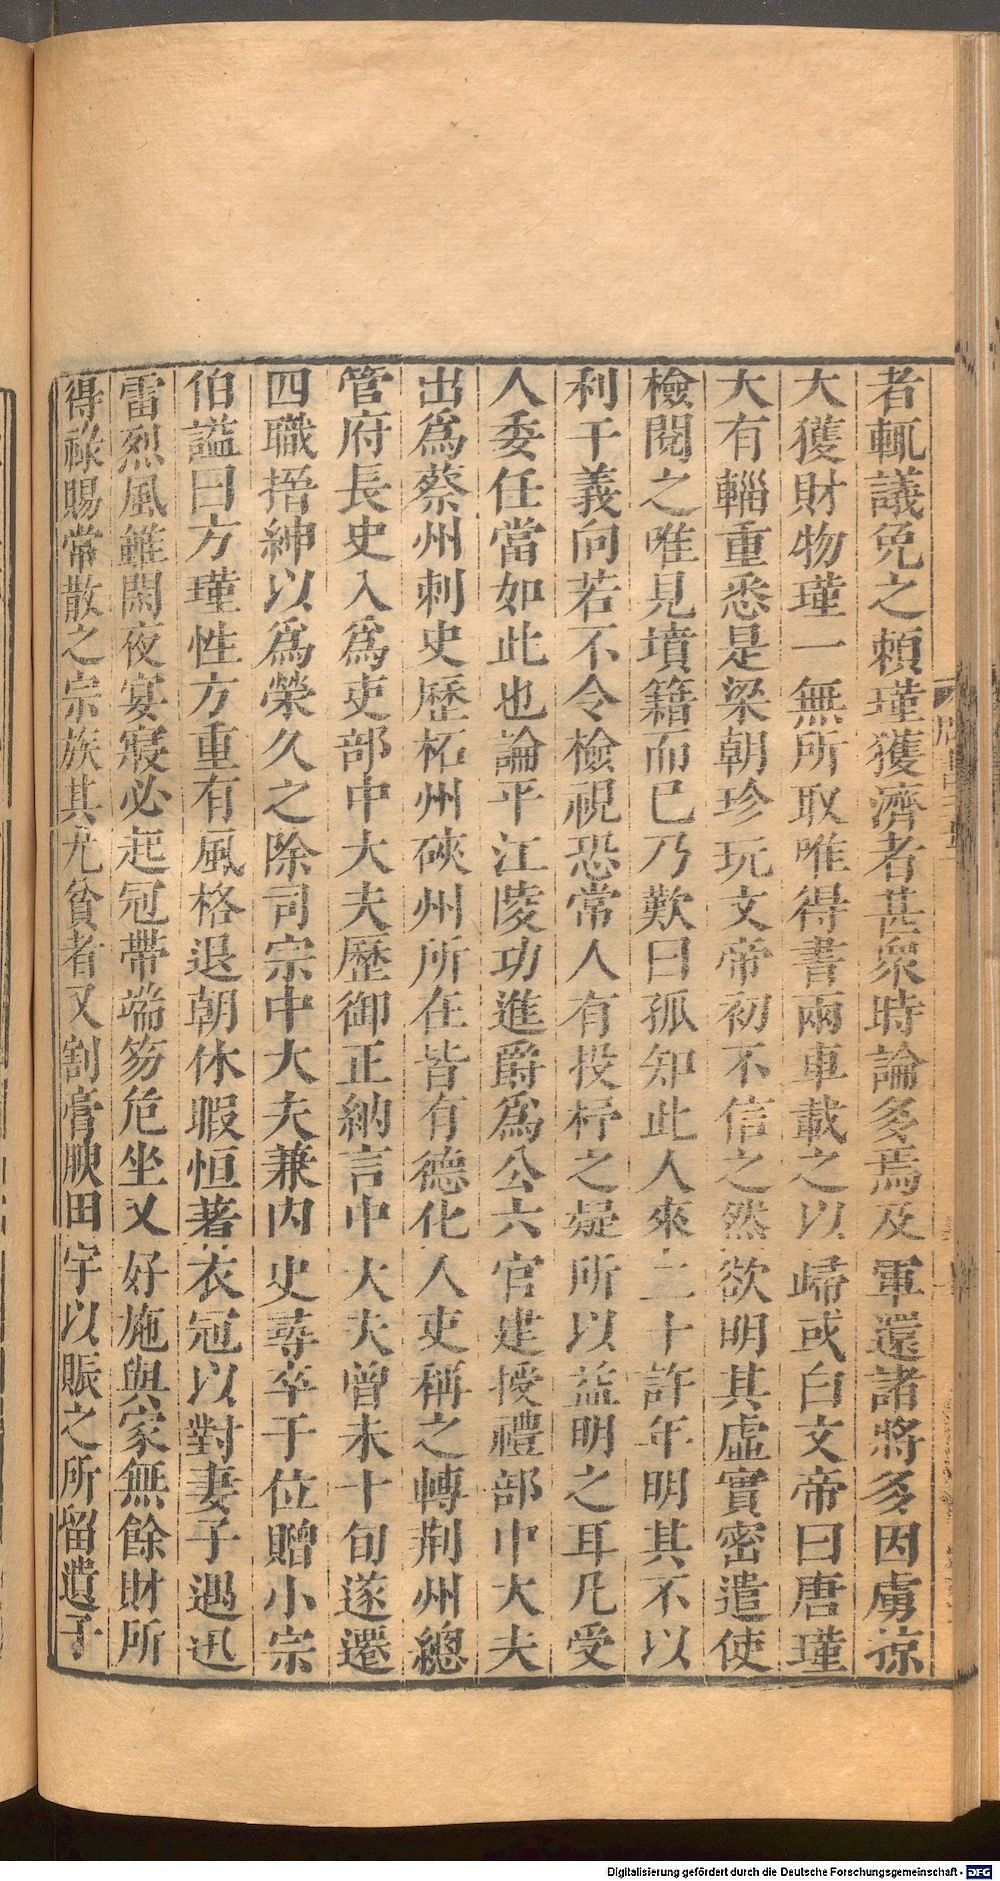 者輒議免之賴瑾獲濟者甚衆時論多焉及軍還諸將多因虜掠
大獲財物瑾一無所取唯得書兩車載之以歸或白文帝曰唐瑾
大有輜重悉是梁朝珍玩文帝初不信之然欲明其虛實密遣使
檢閱之唯見墳籍而已乃歎曰孤知此人來二十許年明其不以
利干義向若不令檢視恐常人有投杼之疑所以益明之耳凡受
人委任當如此也論平江陵功進爵爲公六官建授禮部中大夫
出爲蔡州刺史歷柘州硤州所在皆有德化人吏稱之轉荊州總
管府長史入爲吏部中大夫歷御正納言中大夫曾未十旬遂遷
四職搢紳以爲榮久之除司宗中大夫兼内史尋卒于位贈小宗
伯謚曰方瑾性方重有風格退朝休暇恒著衣冠以對妻子遇迅
雷烈風雖閑夜宴寢必起冠帶端笏危坐又好施與家無餘財所
得祿賜常散之宗族其尤貧者又割膏腴田宇以賑之所留遺子
Digitalisierung gefördert durch die Deutsche Forschungsgemeinschaft - DFG